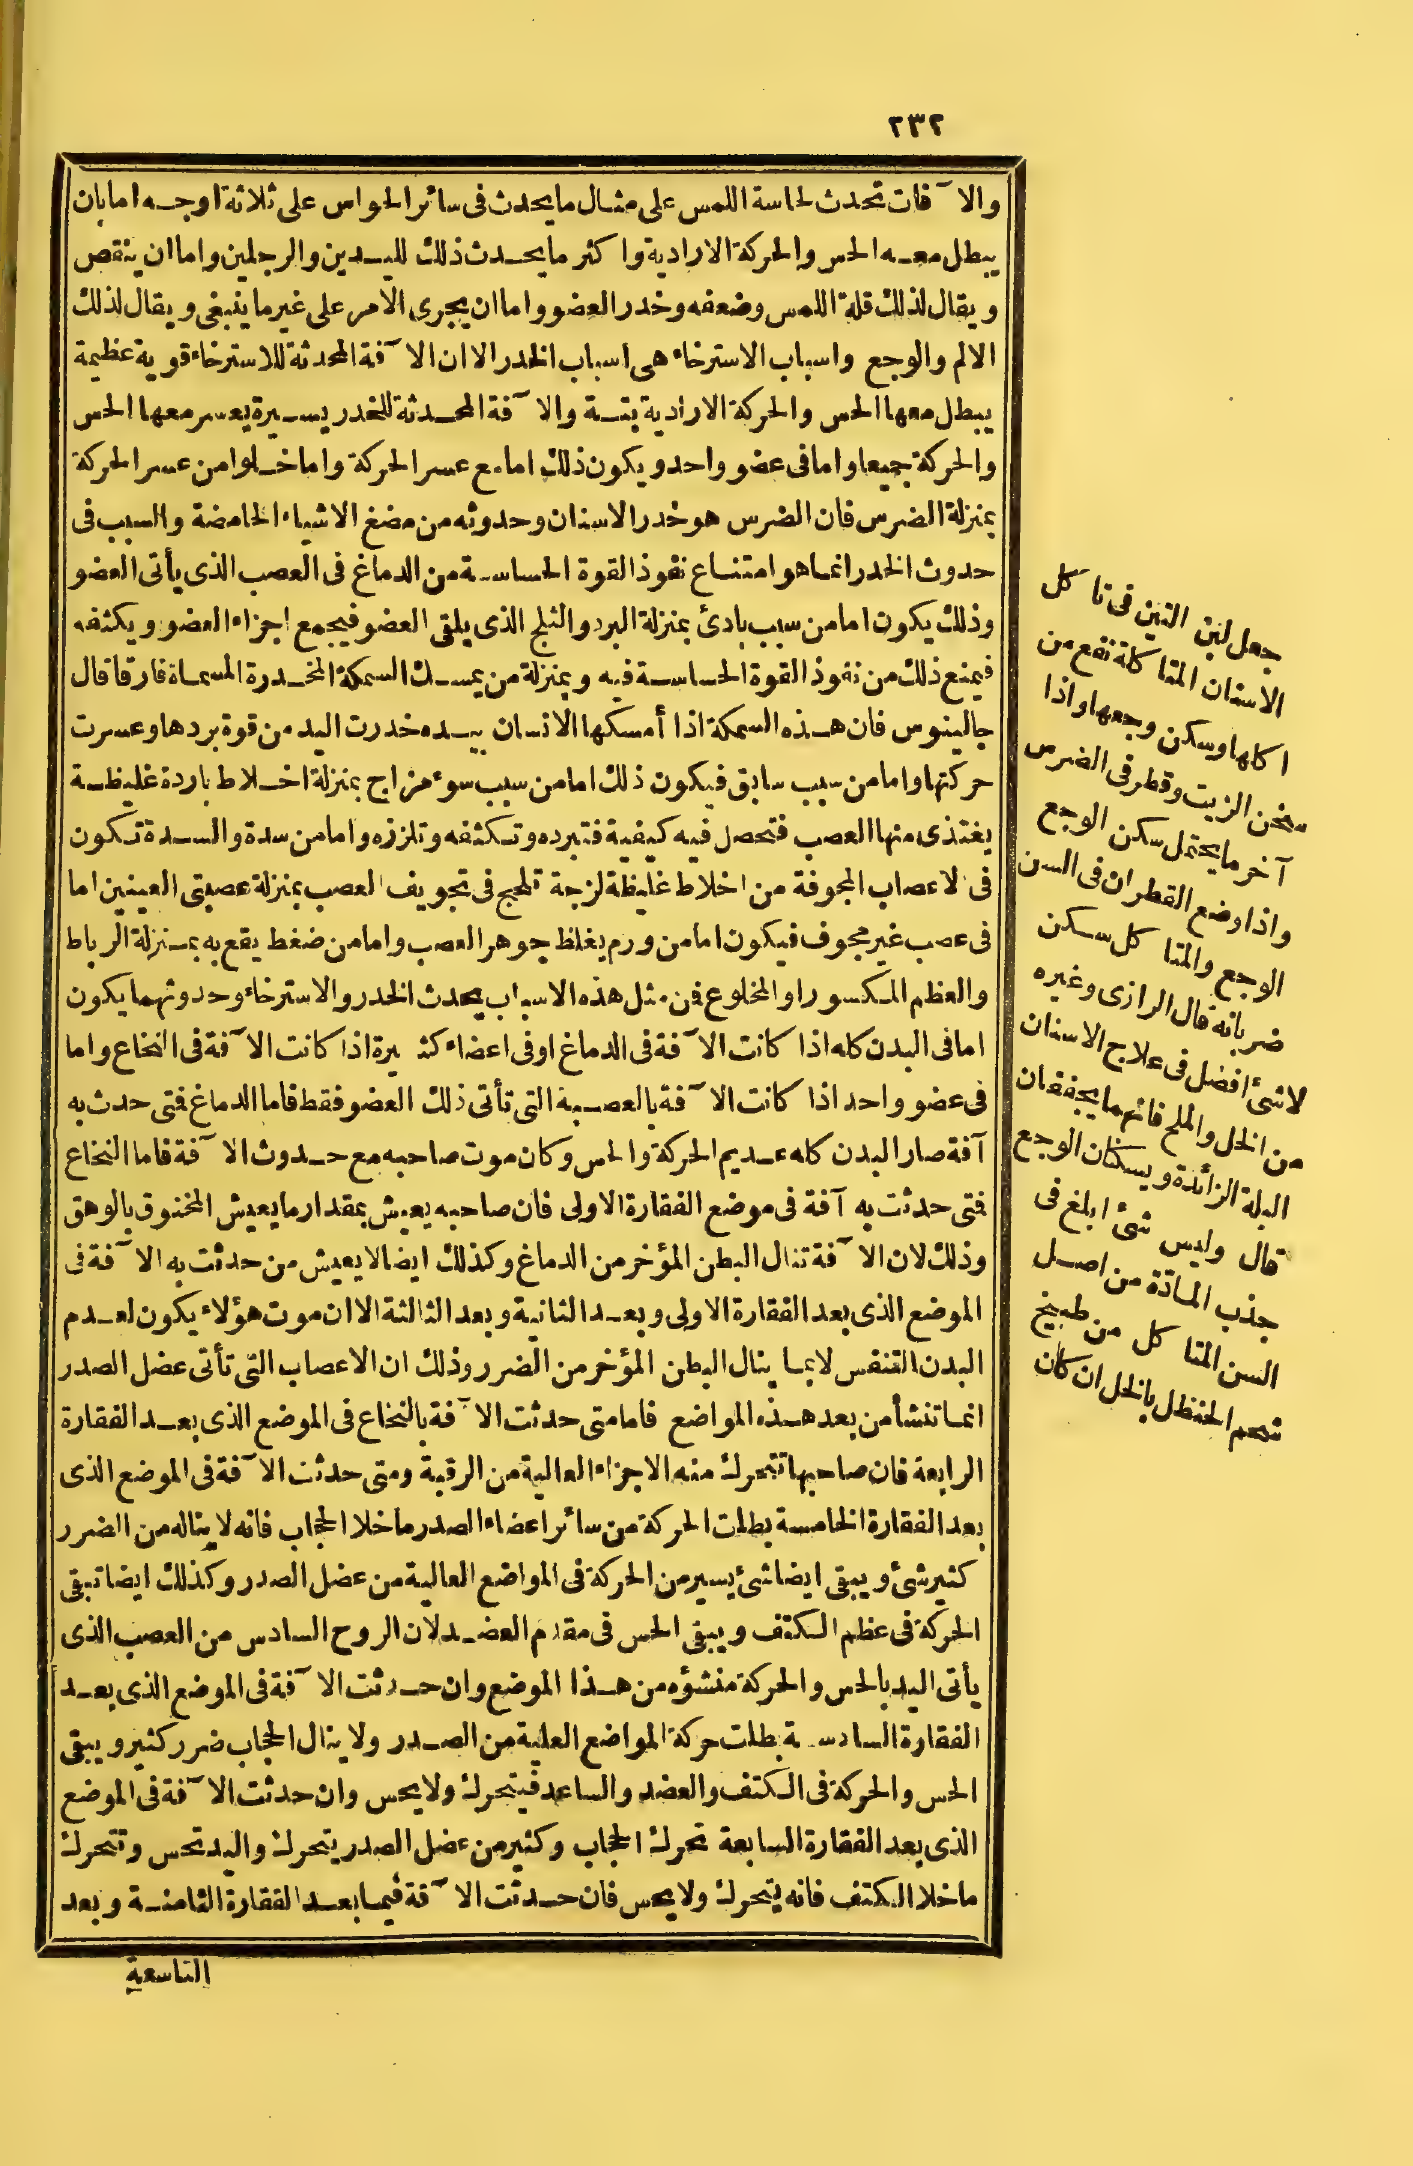 ٢٣٢
والا آفات تحدث لحاسة اللمس على مثال ما يحدث فى سائر الحواس على ثلاثة اوجه اما بان
يبطل معه الحس والحركة الارادية واكثر ما يحدث ذلك لليدين والرجلين واما ان ينقص
ويقال لذلك قلة اللمس وضعفه وخدر العضو واما ان يجرى الامر على غير ما ينبغى ويقال لذلك
الالم والوجع واسباب الاسترخاء هى اسباب الخدر الا ان الا آفة المحدثة للاسترخاء قوية عظيمة
يبطل معها الحس والحركة الارادية بتة والا آفة المحدثة للخدر يسيرة يعسر معها الحس
والحركة جميعا واما فى عضو واحد ويكون ذلك اما مع عسر الحركة واما خلوا من عسر الحركة
بمنزلة الضرس فان الضرس هو خدر الاسنان وحدوثه من مضغ الاشياء الحامضة والسبب فى
حدوث الخدر انما هو امتناع نفوذ القوة الحساسة من الدماغ فى العصب الذى يأتى العضو
وذلك يكون اما من سبب بادئ بمنزلة البرد والثلج الذى يلقى العضو فيجمع اجزاء العضو ويكثفه
فيمنع ذلك من نفوذ القوة الحساسة فيه وبمنزلة من يمسك السمكة المخدرة المسماة فارقا قال
جالينوس فان هذه السمكة اذا أمسكها الانسان بيده خدرت اليد من قوة بردها وعسرت
حركتها واما من سبب سابق فيكون ذلك اما من سبب سوء مزاج بمنزلة اخلاط باردة غليظة
يغتذى منها العصب فتحصل فيه كيفية فتبرده وتكثفه وتلززه واما من سدة والسدة تكون
فى الاعصاب المجوفة من اخلاط غليظة لزجة تلحج فى تجويف العصب بمنزلة عصبتى العينين اما
فى عصب غير مجوف فيكون اما من ورم يغلظ جوهر العصب واما من ضغط يقع به بمنزلة الرباط
والعظم المكسور او المخلوع فمن مثل هذه الاسباب يحدث الخدر والاسترخاء وحدوثهما يكون
اما فى البدن كله اذا كانت الا آفة فى الدماغ او فى اعضاء كثيرة اذا كانت الا آفة فى النخاع واما
فى عضو واحد اذا كانت الا آفة بالعصبة التى تأتى ذلك العضو فقط فاما الدماغ فمتى حدث به
آفة صار البدن كله عديم الحركة والحس وكان موت صاحبه مع حدوث الا آفة فاما النخاع
فمتى حدثت به آفة فى موضع الفقارة الاولى فان صاحبه يعيش بمقدار ما يعيش المخنوق بالوهق
وذلك لان الا آفة تنال البطن المؤخر من الدماغ وكذلك ايضا لا يعيش من حدثت به الا آفة فى
الموضع الذى بعد الفقارة الاولى وبعد الثانية وبعد الثالثة الا ان موت هؤلاء يكون لعدم
البدن التنفس لا بما ينال البطن المؤخر من الضرر وذلك ان الاعصاب التى تأتى عضل الصدر
انما تنشأ من بعد هذه المواضع فاما متى حدثت الا آفة بالنخاع فى الموضع الذى بعد الفقارة
الرابعة فان صاحبها تتحرك منه الاجزاء العالية من الرقبة ومتى حدثت الا آفة فى الموضع الذى
بعد الفقارة الخامسة بطلت الحركة من سائر اعضاء الصدر ما خلا الحجاب فانه لا يناله من الضرر
كثير شئ ويبقى ايضا شئ يسير من الحركة فى المواضع العالية من عضل الصدر وكذلك ايضا تبقى
الحركة فى عظم الكتف ويبقى الحس فى مقدم العضد لان الروح السادس من العصب الذى
يأتى اليد بالحس والحركة منشؤه من هذا الموضع وان حدثت الا آفة فى الموضع الذى بعد
الفقارة السادسة بطلت حركة المواضع العلية من الصدر ولا ينال الحجاب ضرر كثير ويبقى
الحس والحركة فى الكتف والعضد والساعد فيتحرك ولا يحس وان حدثت الا آفة فى الموضع
الذى بعد الفقارة السابعة تحرك الحجاب وكثير من عضل الصدر يتحرك واليد تحس وتتحرك
ما خلا الكتف فانه يتحرك ولا يحس فان حدثت الا آفة فيما بعد الفقارة الثامنة وبعد
التاسعة
جعل لبن التين فى تا كل
الاسنان المتا كلة نفع من
اكلها وسكن وجعها واذا
سخن الزيت وقطر فى الضرس
آخر ما يحتمل سكن الوجع
واذا وضع القطران فى السن
الوجع والمتا كل سكن
ضربانه قال الرازى وغيره
لا شئ افضل فى علاج الاسنان
من الخل والملح فانهما يجففان
البلة الزائدة ويسكنان الوجع
قال وليس شئ ابلغ فى
جذب المادّة من اصل
السن المتا كل من طبيخ
شحم الحنظل بالخل ان كان